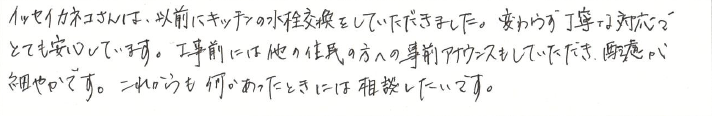 イッセイカネコさんは、以前にキッチンの水栓交換をしていただきました。変わらず丁寧な対応で
とても安心しています。工事前には他の住民の方への事前アナウンスもしていただき、配慮が
細やかです。これからも何かあったときには相談したいです。